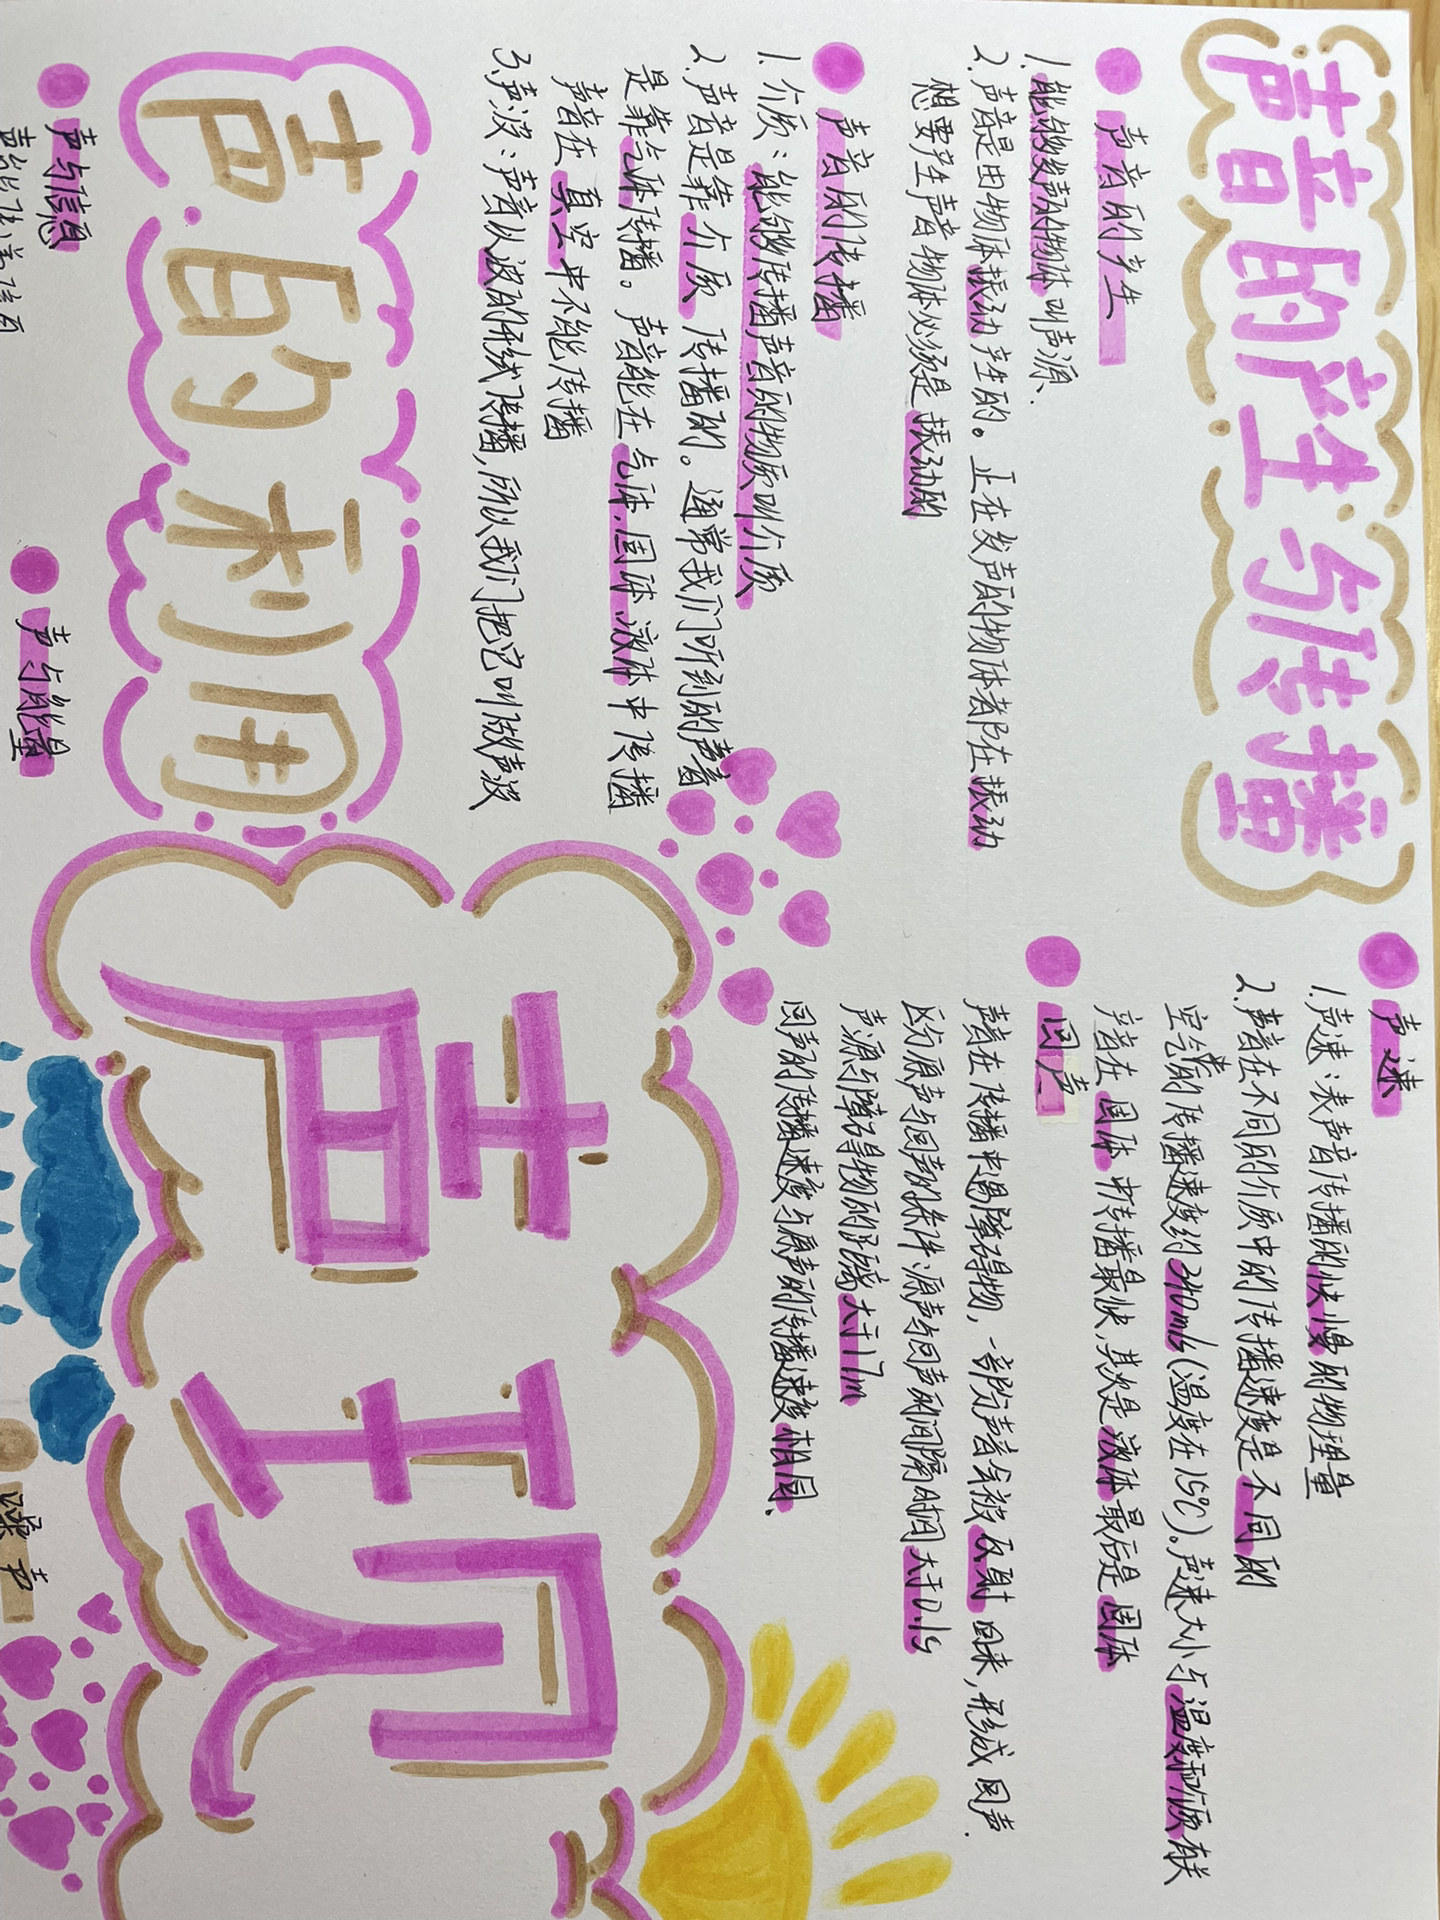 声音的产生与传播
声音的产生
1.能够发声的物体叫声源.
2.声音是由物体振动产生的。正在发声的物体都在振动
想要产生声音物体必须是振动的
声音的传播
1.介质:能够传播声音的物质叫介质
2.声音是靠介质传播的。通常我们听到的声音
是靠气体传播。声音能在气体.固体.液体中传播
声音在真空中不能传播
3.声波:声音以波的形式传播,所以我们把它叫做声波
声速
1.声速:表声音传播的快慢的物理量
2.声音在不同的介质中的传播速度是不同的
空气的传播速度约340m/s(温度在15℃)。声速大小与温度和介质有关
声音在固体中传播最快,其次是液体最后是固体
回声
声音在传播中遇障碍物,一部份声音气被反射回来,形成回声.
区份原声与回声的条件:源声与回声的间隔时间大于0.1s
声源与障碍物的距离大于17m
回声的传播速度与原声的传播速度相同.
声的利用
声与信息
声能传递信息
声与能量
声现
噪声